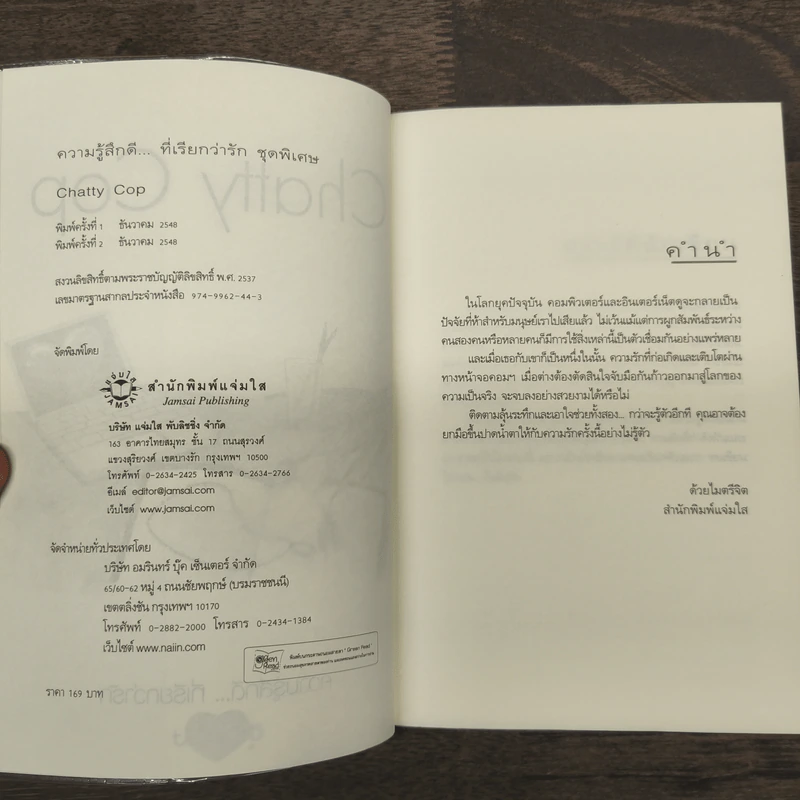 ความรู้สึกดี... ที่เรียกว่ารัก ชุดพิเศษ
Chatty Cop
พิมพ์ครั้งที่ 1 ธันวาคม 2548
พิมพ์ครั้งที่ 2 ธันวาคม 2548
สงวนลิขสิทธิ์ตามพระราชบัญญัติลิขสิทธิ์ พ.ศ. 2537
เลขมาตรฐานสากลประจำหนังสือ 974-9962-44-3
จัดพิมพ์โดย
สำนักพิมพ์แจ่มใส
Jamsai Publishing
บริษัท แจ่มใส พับลิชชิ่ง จำกัด
163 อาคารไทยสมุทร ชั้น 17 ถนนสุรวงศ์
แขวงสุริยวงศ์ เขตบางรัก กรุงเทพฯ 10500
โทรศัพท์ 0-2634-2425 โทรสาร 0-2634-2766
อีเมล์ editor@jamsai.com
เว็บไซต์ www.jamsai.com
จัดจำหน่ายทั่วประเทศโดย
บริษัท อมรินทร์ บุ๊ค เซ็นเตอร์ จำกัด
65/60-62 หมู่ 4 ถนนชัยพฤกษ์ (บรมราชชนนี)
เขตตลิ่งชัน กรุงเทพฯ 10170
โทรศัพท์ 0-2882-2000 โทรสาร 0-2434-1384
เว็บไซต์ www.naiin.com
Green Read
ราคา 169 บาท
คำนำ
ในโลกยุคปัจจุบัน คอมพิวเตอร์และอินเตอร์เน็ตดูจะกลายเป็น
ปัจจัยที่ห้าสำหรับมนุษย์เราไปเสียแล้ว ไม่เว้นแม้แต่การผูกสัมพันธ์ระหว่าง
คนสองคนหรือหลายคนก็มีการใช้สิ่งเหล่านี้เป็นตัวเชื่อมกันอย่างแพร่หลาย
และเมื่อเธอกับเขาก็เป็นหนึ่งในนั้น ความรักที่ก่อเกิดและเติบโตผ่าน
ทางหน้าจอคอมฯ เมื่อต่างต้องตัดสินใจจับมือกันก้าวออกมาสู่โลกของ
ความเป็นจริง จะจบลงอย่างสวยงามได้หรือไม่
ติดตามลุ้นระทึกและเอาใจช่วยทั้งสอง... กว่าจะรู้ตัวอีกที คุณอาจต้อง
ยกมือขึ้นปาดน้ำตาให้กับความรักครั้งนี้อย่างไม่รู้ตัว
ด้วยไมตรีจิต
สำนักพิมพ์แจ่มใส